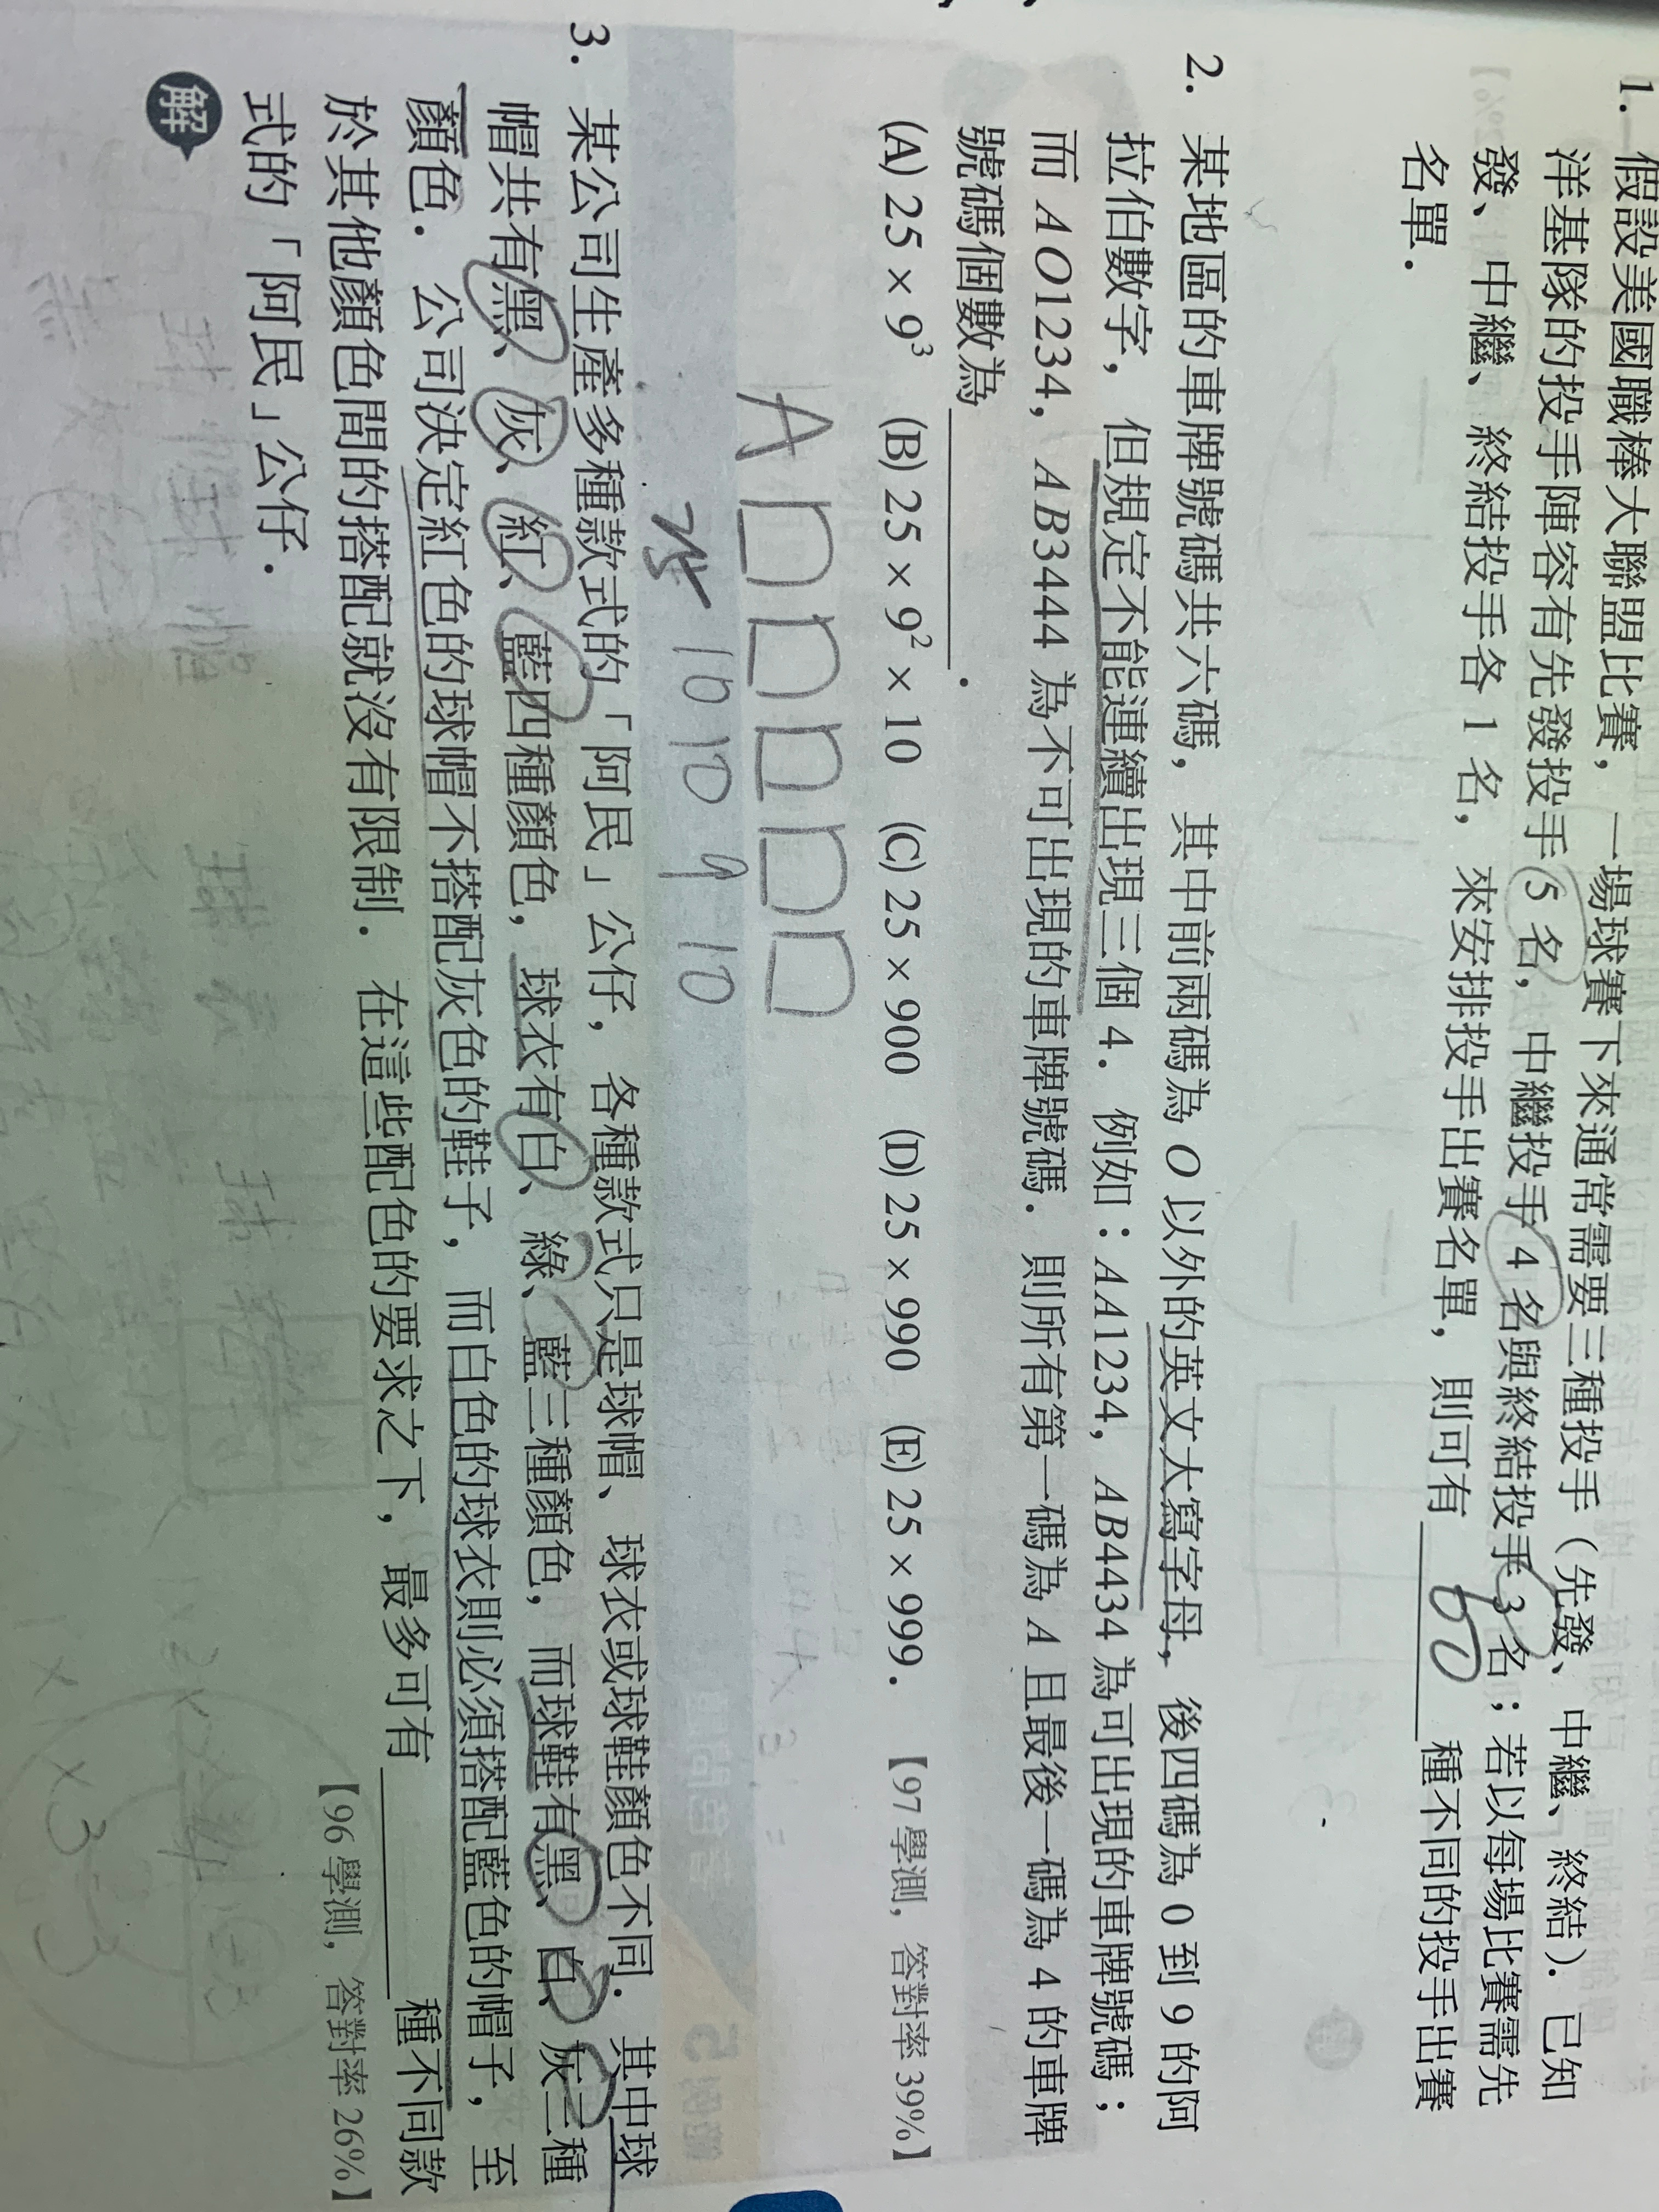 1. 假設美國職棒大聯盟比賽，一場球賽下來通常需要三種投手（先發、中繼、終結）．已知
洋基隊的投手陣容有先發投手 5 名，中繼投手 4 名與終結投手 3 名；若以每場比賽需先
發、中繼、終結投手各 1 名，來安排投手出賽名單，則可有 60 種不同的投手出賽
名單．
2. 某地區的車牌號碼共六碼，其中前兩碼為 O 以外的英文大寫字母，後四碼為 0 到 9 的阿
拉伯數字，但規定不能連續出現三個 4．例如：AA1234，AB4434 為可出現的車牌號碼；
而 AO1234，AB3444 為不可出現的車牌號碼．則所有第一碼為 A 且最後一碼為 4 的車牌
號碼個數為＿＿＿＿．
(A) 25 × 9³ (B) 25 × 9² × 10 (C) 25 × 900 (D) 25 × 990 (E) 25 × 999．
【97 學測，答對率 39%】
A □ □ □ □ □
25 10 10 9 10
3. 某公司生產多種款式的「阿民」公仔，各種款式只是球帽、球衣或球鞋顏色不同．其中球
帽共有黑、灰、紅、藍四種顏色，球衣有白、綠、藍三種顏色，而球鞋有黑、白、灰三種
顏色．公司決定紅色的球帽不搭配灰色的鞋子，而白色的球衣則必須搭配藍色的帽子，至
於其他顏色間的搭配就沒有限制．在這些配色的要求之下，最多可有＿＿＿＿種不同款
式的「阿民」公仔．
【96 學測，答對率 26%】
解